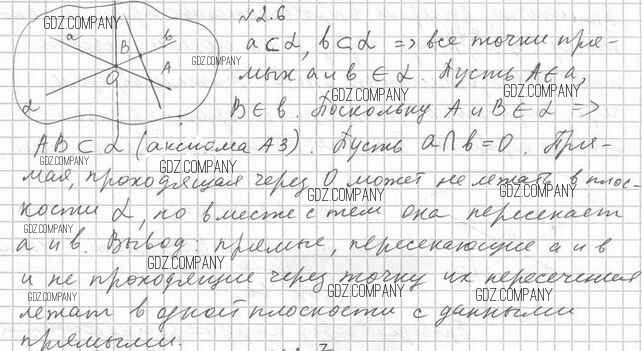 №2.6
a⊂α, b⊂α => все точки пря-
мых a и b ∈ α. Пусть A∈a,
B∈b. Поскольку A и B∈α =>
AB⊂α (аксиома А3). Пусть a∩b=O. Пря-
мая, проходящая через O может не лежать в плос-
кости α, но вместе с тем она пересекает
a и b. Вывод: прямые, пересекающие a и b
и не проходящие через точку их пересечения
лежат в одной плоскости с данными
прямыми.
a
B
b
O
A
α
GDZ.COMPANY
GDZ.COMPANY
GDZ.COMPANY
GDZ.COMPANY
GDZ.COMPANY
GDZ.COMPANY
GDZ.COMPANY
GDZ.COMPANY
GDZ.COMPANY
GDZ.COMPANY
GDZ.COMPANY
GDZ.COMPANY
GDZ.COMPANY
GDZ.COMPANY